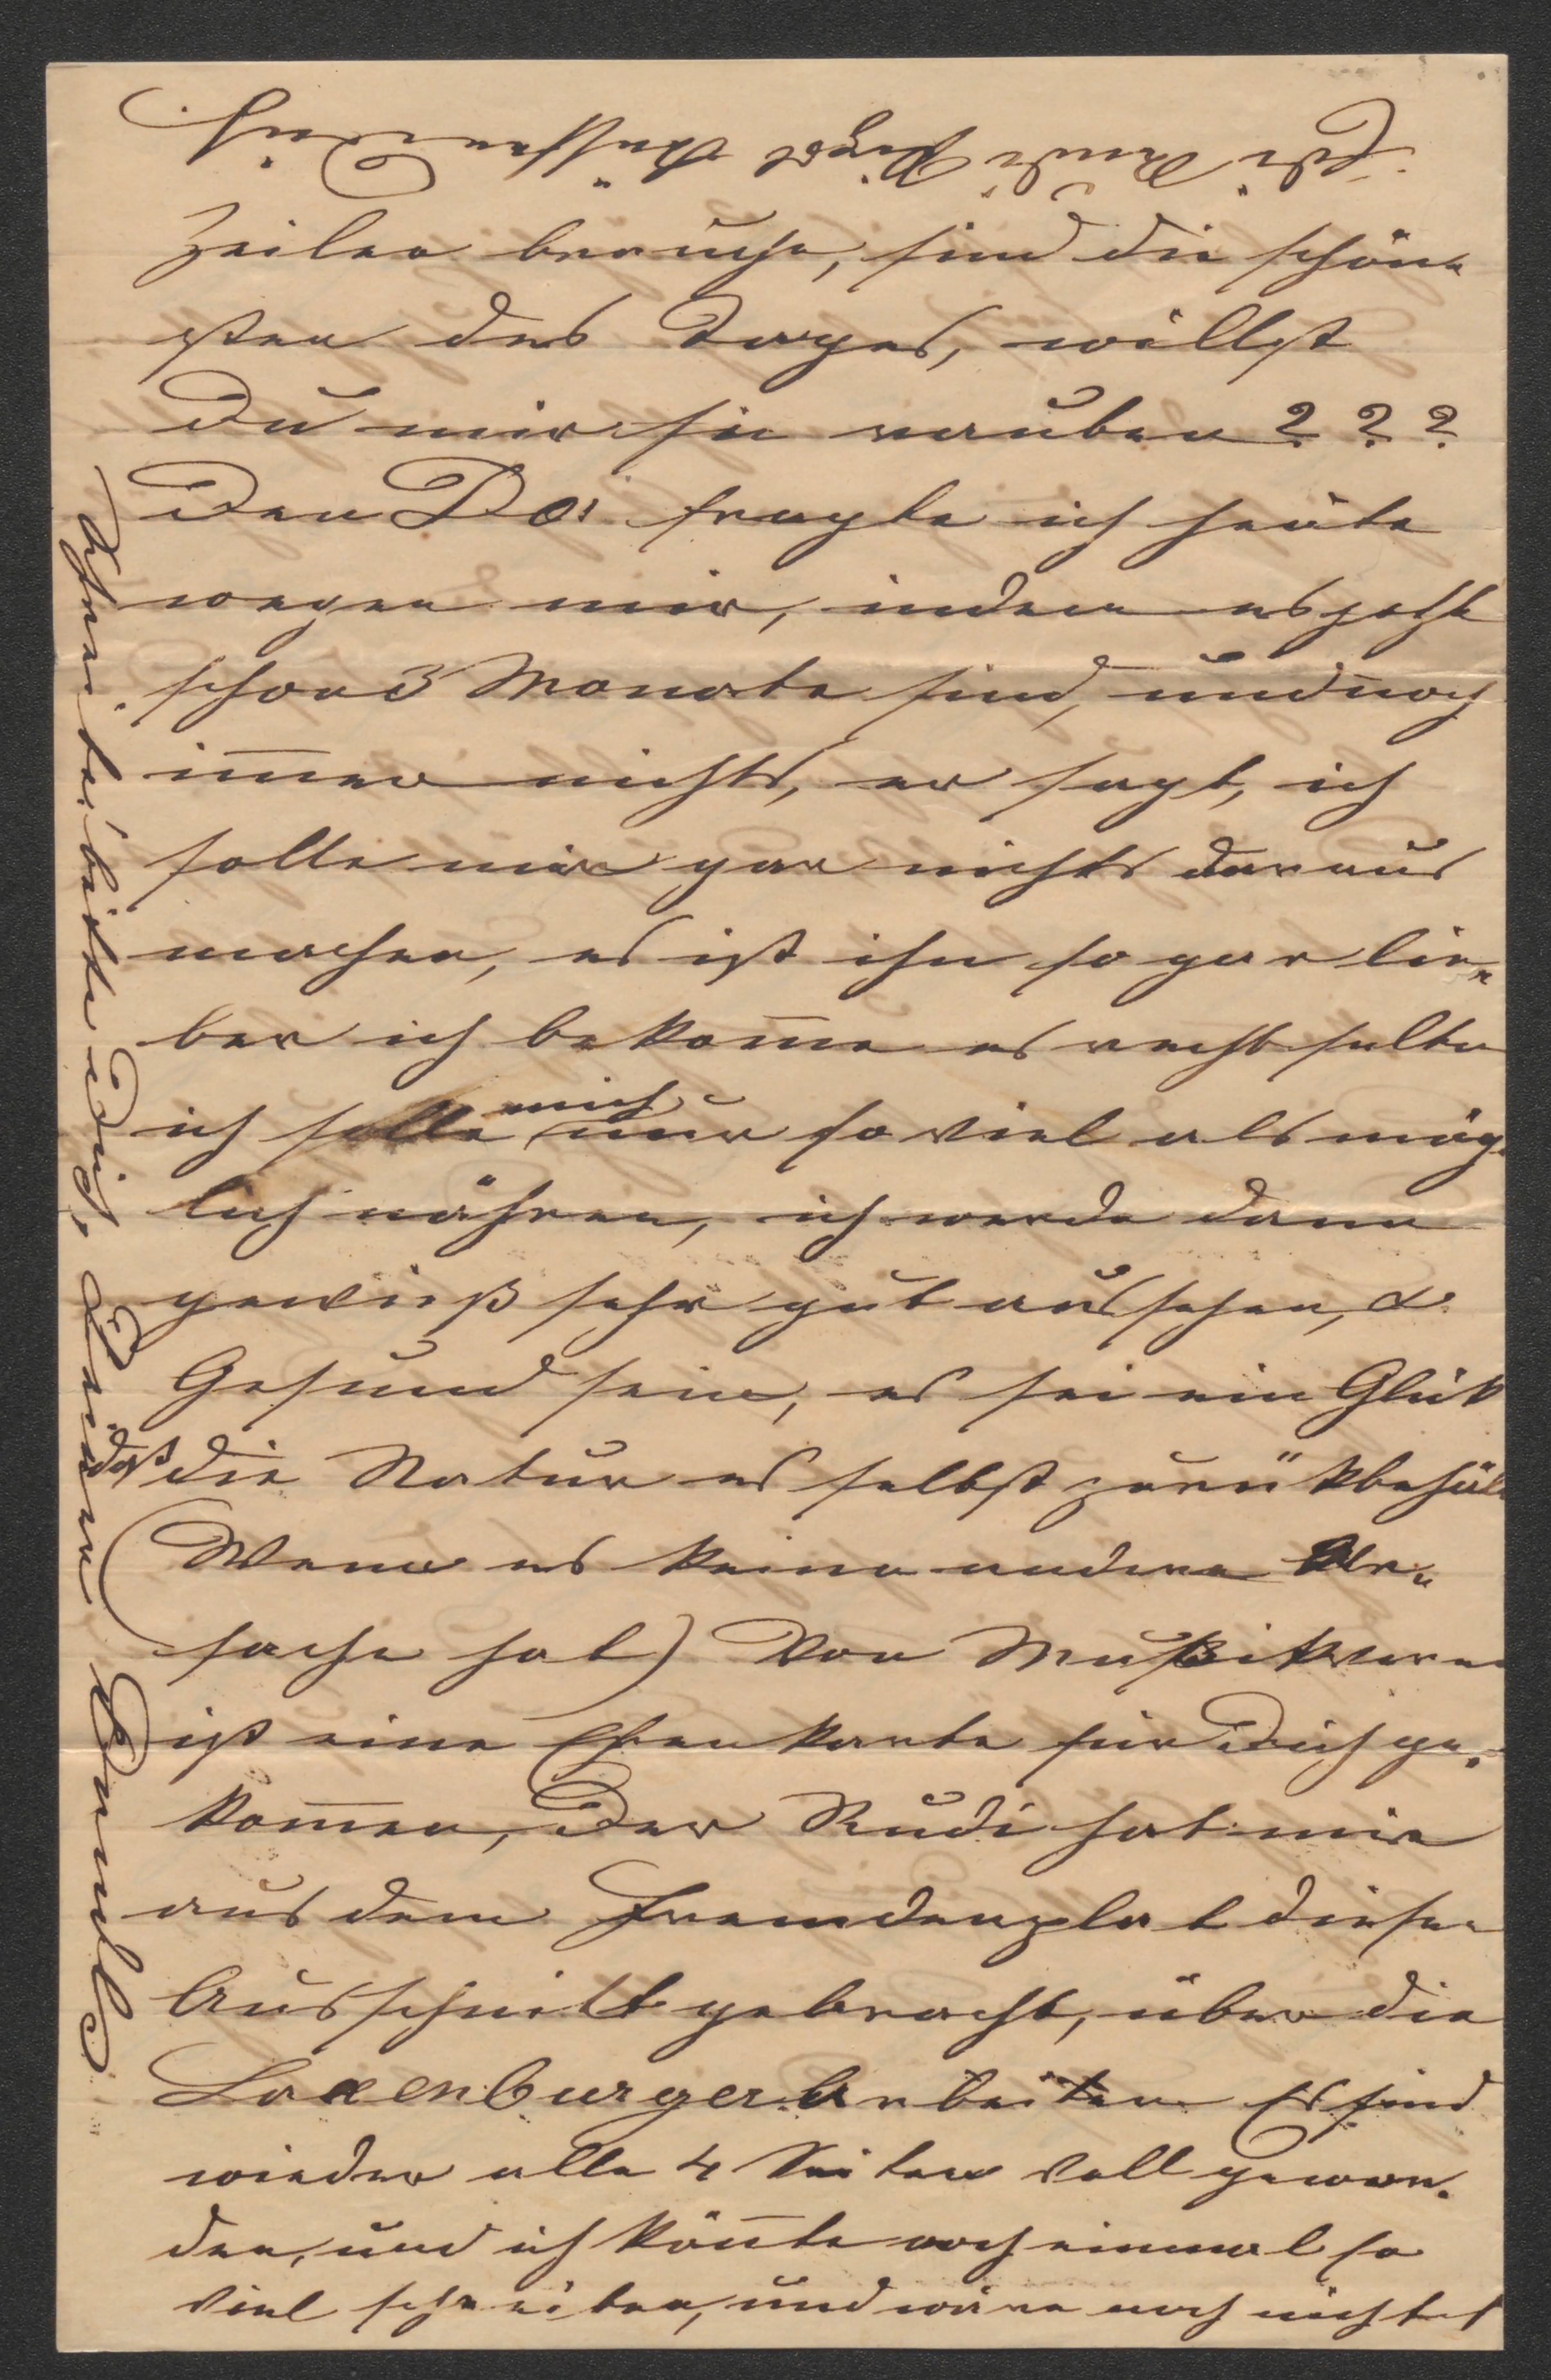 Zeilen brauche, sind die schön„
sten des Tages, willst
Du mir sie rauben ? ? ?
Den Do: fragte ich heute
wegen mir, indem es jetzt
schon 3 Monate sind, und noch
im̅er nichts, er sagt, ich
solle mir gar nichts daraus
machen, es ist ihm sogar lie„
ber ich bekom̅e es recht selten
ich solle mich nur so viel als mög„
lich nähren, ich werde dann
gewiß sehr gut aussehen, &
Gesund sein, es sei ein Glük
daß die Natur es selbst zurükbehält
(Wenn es keine andere Ur„
sache hat) Von Mußikverein
ist eine Ehrenkarte für Dich ge„
kom̅en, Der Rudi hat mir
aus dem Fremdenplat diesen
Ausschnitt gebracht, über die
Laxenburger Arbeiten Es sind
wieder alle 4 Seiten voll gewor„
den, und ich kön̅te noch einmal so
viel schreiben, und wäre noch nicht
Schreibe! bitte Dich,
Edi Rudi